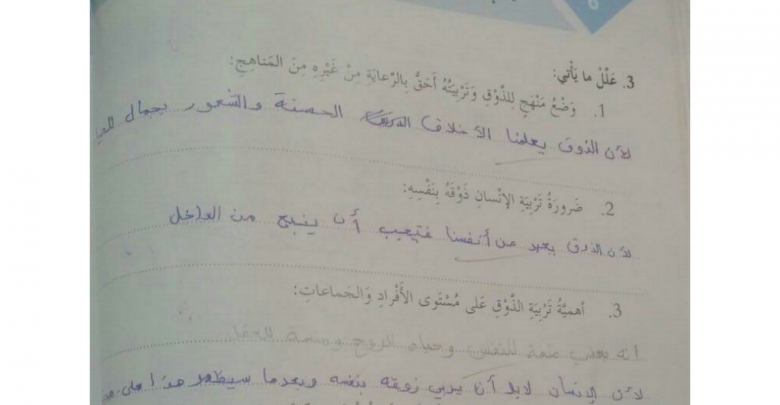 6
3. عَلِّلْ ما يَأْتي:
1. وَضْعُ مَنْهَجٍ لِلذَّوْقِ وَتَرْبِيَتُهُ أَحَقُّ بِالرِّعايَةِ مِنْ غَيْرِهِ مِنَ المَناهِجِ:
لأن الذوق يعلمنا الأخلاق الحسنة والشعور بجمال
2. ضَرورَةُ تَرْبِيَةِ الإِنْسانِ ذَوْقَهُ بِنَفْسِهِ:
لأن الذوق من أنفسنا فيجب أن ينبع من الداخل
3. أَهميَّةُ تَرْبِيَةِ الذَّوْقِ عَلى مُسْتَوى الأَفْرادِ وَالجَماعاتِ:
أنه للنفس وحياة الروح
لأن الإنسان لابد أن يربي ذوقه بنفسه وبعدما سيظهر هذا على